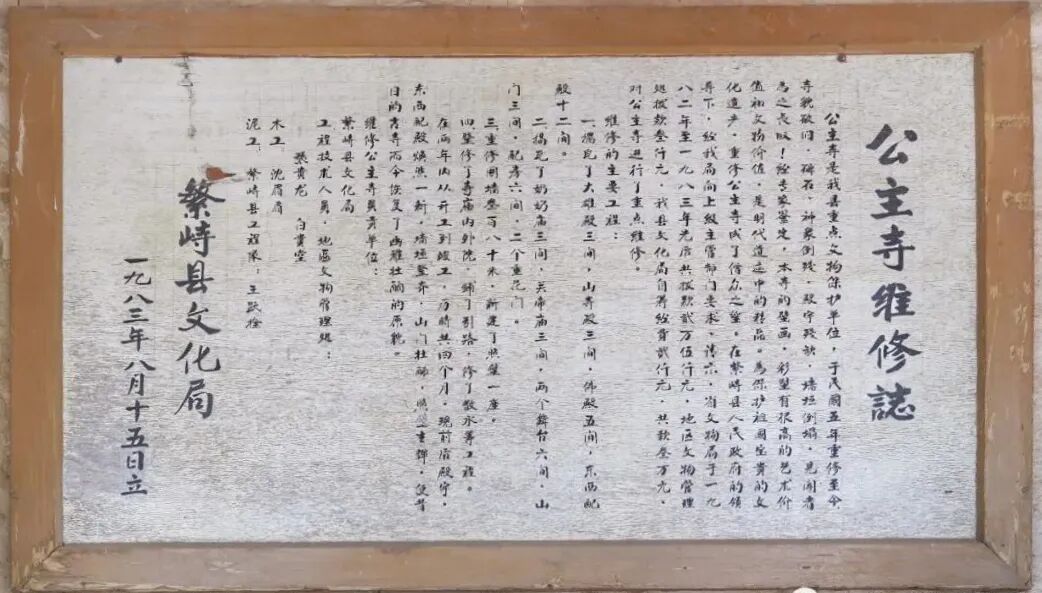 公主寺维修誌
公主寺是我县重点文物保护单位，于民国五年重修至今，
寺貌破旧，碑石、神象倒残，殿宇残缺，墙垣倒塌，见闻者
为之长叹！经专家鉴定，本寺的壁画，彩塑有很高的艺术价
值和文物价值，是明代遗迹中的精品。为保护祖国宝贵的文
化遗产，重修公主寺成了僧众之望。在繁峙县人民政府的领
导下，经我局向上级主管部门要求，请示，省文物局于一九
八二年至一九八三年先后共拨款贰万伍仟元，地区文物管理
处拨款叁仟元，我县文化局自筹经费贰仟元，共款叁万元，
对公主寺进行了重点维修。
维修的主要工程：
一.揭瓦了大雄殿三间，山寺殿三间，佛殿五间，东西配
殿十二间。
二.揭瓦了奶奶庙三间，关帝庙三间，两个舞台六间，山
门三间，配房六间，二个垂花门。
三.重修围墙叁百八十米，新建了照壁一座。
四.整修了寺庙内外院，铺了引路，修了散水等工程。
在两年内从开工到竣工，历时共四个月，现前后殿宇，
东西配殿焕然一新，墙垣整齐，山门壮丽，照壁重辉，使昔
日的青寺而今恢复了幽雅壮丽的原貌。
维修公主寺负责单位：
繁峙县文化局
工程技术人员，地区文物管理站：
张贵龙 白贵堂
木工：沈眉眉
泥工：繁峙县工程队：王跃拴
繁峙县文化局
一九八三年八月十五日立